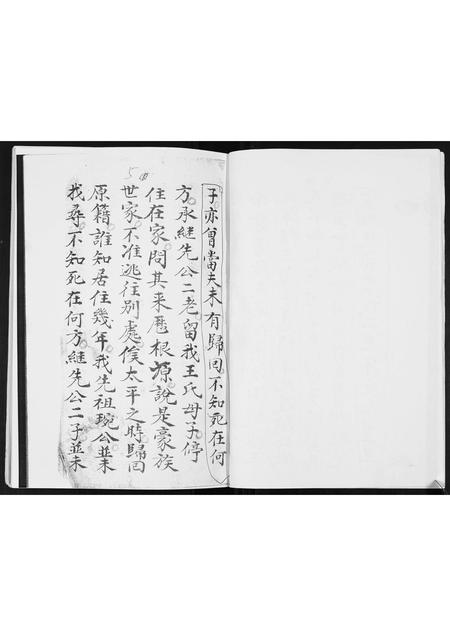 子亦曾當夫未有歸回不知死在何
方承継先公二老留我王氏母子停
住在家問其来厯根源說是豪族
世家不准逃往別處俟太平之時歸回
原籍誰知居住幾年我先祖琬公並未
找尋不知死在何方継先公二子並未
5